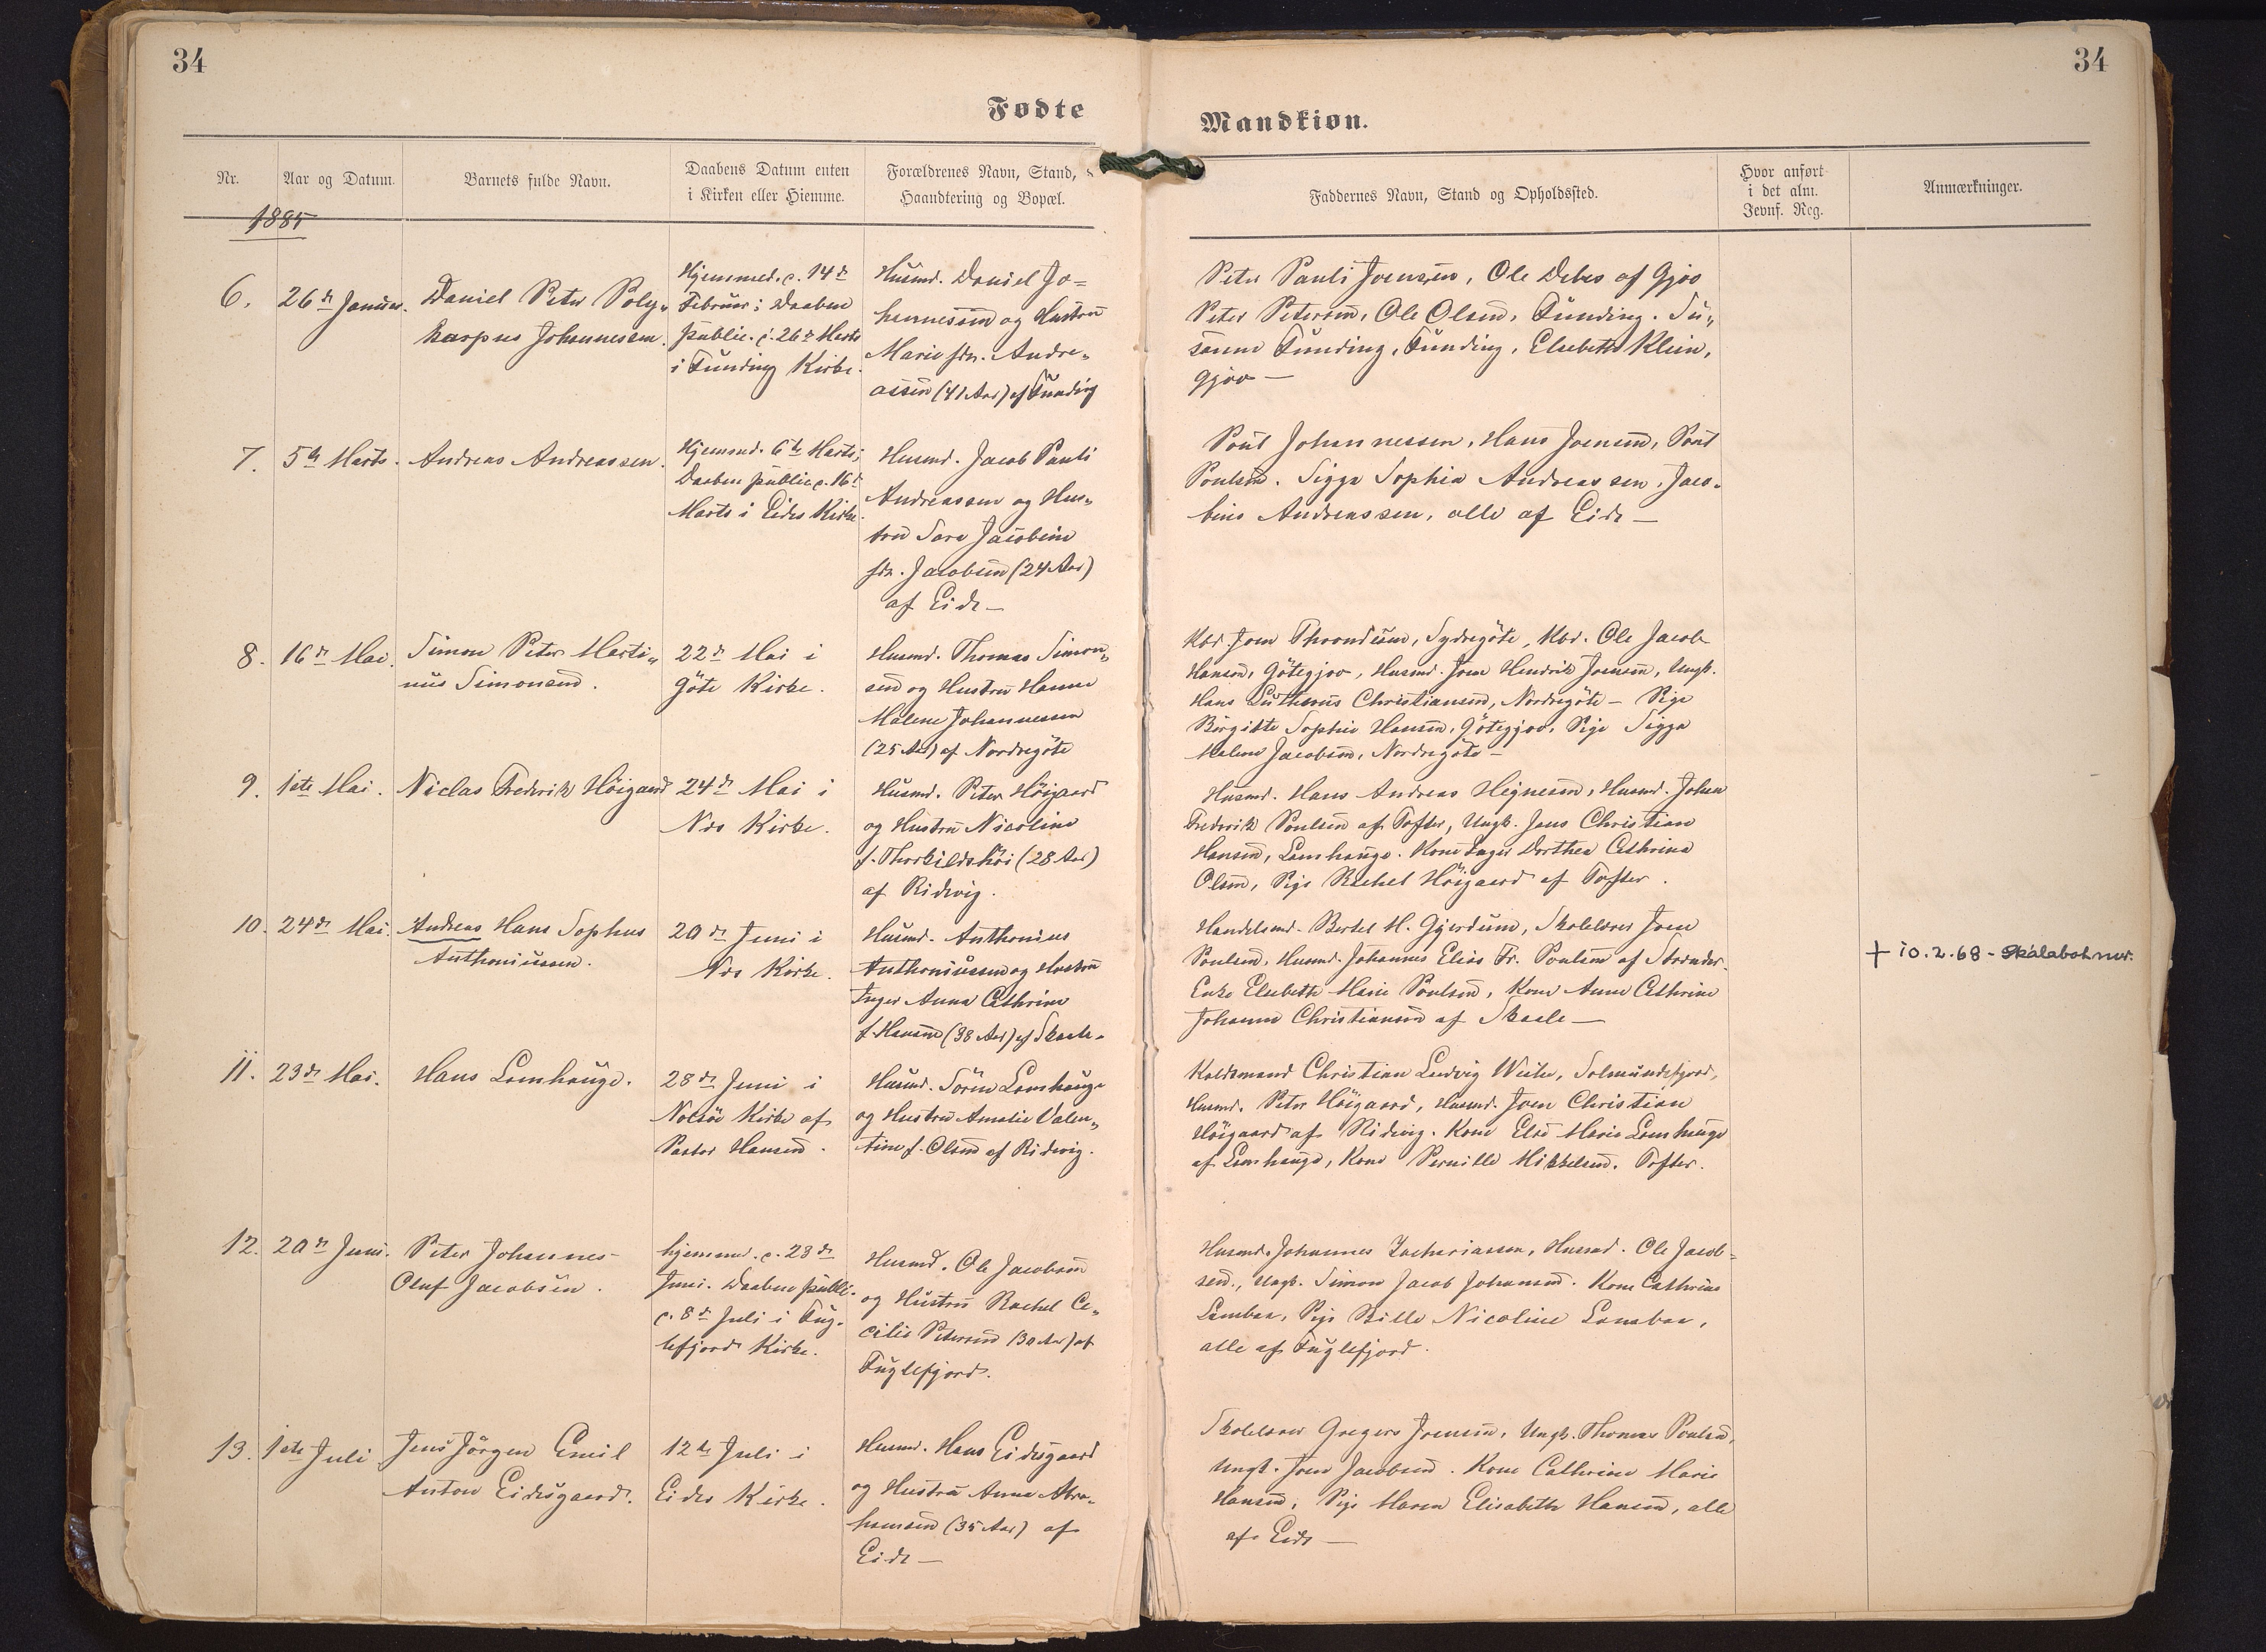 34
34
Fødte
Mandkiøn.
Nr.
Aar og Datum.
Barnets fulde Navn.
Daabens Datum enten
i Kirken eller Hiemme.
Forældrenes Navn, Stand,
Haandtering og Bopæl.
Faddernes Navn, Stand og Opholdssted.
Hvor anført
i det alm.
Jevnf. Reg.
Anmærkninger.
1885
6.
26de Januar.
Daniel Peter Poly-
karpus Johannessen.
Hjemmed. c. 14de
Februar; Daaben
public. c. 26de Marts
i Funding Kirke.
Husmd. Daniel Jo=
hannessen og Hustru
Marie fdr. Andre-
assen (41 Aar) af Funding
Peter Pauli Joensen, Ole Debes af Gjov
Peter Petersen, Ole Olsen, Funding. Su-
sanne Funding, Funding, Elsebeth Klein,
Gjov —
7.
5te Marts.
Andreas Andreassen.
Hjemmd. 6te Marts;
Daaben public. c. 16de
Marts i Eides Kirke.
Husmd. Jacob Pauli
Andreassen og Hus-
tru Sara Jacobine
fdr. Jacobsen (24 Aar)
af Eide —
Poul Johannessen, Hans Joensen, Poul
Poulsen. Sigga Sophia Andreassen, Jaco-
bine Andreassen, alle af Eide —
8.
16de Mai.
Simon Peter Marti-
nus Simonsen.
22de Mai i
Göte Kirke.
Husmd. Thomas Simon-
sen og Hustru Hanna
Malene Johannessen
(25 Aar) af Nordregöte
Kbd. Joen Throndsen, Sydregöte, Kbd. Ole Jacob
Hansen, Götegjov, Husmd. Joen Hendrik Joensen, Ungk.
Hans Lutherus Christiansen, Nordregöte — Pige
Birgitte Sophie Hansen, Götegjov, Pige Sigga
Malene Jacobsen, Nordregöte —
9.
1ste Mai.
Niclas Frederik Höigaard
24de Mai i
Næs Kirke.
Husmd. Peter Höigaard
og Hustru Nicoline
f. Thorkildshöi (28 Aar)
af Ridevig.
Husmd. Hans Andreas Højnesen, Husmd. Johan
Frederik Poulsen af Tofter, Ungk. Jens Christian
Hansen, Lamhauge. Kone Inger Dorthea Cathrina
Olsen, Pige Rachel Höigaard af Tofter.
10.
24de Mai.
Andreas Hans Sophus
Anthoniussen.
20de Juni i
Næs Kirke.
Husmd. Anthonius
Anthoniussen og Hustru
Inger Anna Cathrine
f. Hansen (38 Aar) af Skaale.
Handelsmd. Bertel M. Gjerdum, Skolelærer Joen
Poulsen, Husmd. Johannes Elias Fr. Poulsen af Strænder.
Enke Elsebeth Marie Poulsen, Kone Anne Cathrine
Johanne Christiansen af Skaale —
† 10.2.68 - Skálabotnur.
11.
23de Mai.
Hans Lamhauge.
28de Juni i
Nolsöe Kirke af
Pastor Hansen.
Husmd. Sören Lamhauge
og Hustru Amalie Valen-
tine f. Olsen af Ridevig.
Koldsmand Christian Ludvig Weihe, Solmundefjord,
Husmd. Peter Höigaard, Husmd. Joen Christian
Höigaard af Ridevig. Kone Else Marie Lamhauge
af Lamhauge, Kone Pernille Mikkelsen. Tofter.
12.
20de Juni.
Peter Johannes
Oluf Jacobsen.
hjemmed. c. 23de
Juni. Daaben publi-
c. 8de Juli i Fug-
lefjord Kirke.
Husmd. Ole Jacobsen
og Hustru Rachel Ce-
cilie Petersen (30 Aar) af
Fuglefjord.
Husmd. Johannes Zachariasen, Husmd. Ole Jacob-
sen, Ungk. Simon Jacob Johansen. Kone Cathrine
Lambaa, Pige Bille Nicoline Lambaa,
alle af Fuglefjord.
13.
1ste Juli
Jens Jörgen Emil
Anton Eidesgaard.
12te Juli i
Eides Kirke.
Husmd. Hans Eidesgaard
og Hustru Anna Abra-
hamsen (35 Aar) af
Eide —
Skolelærer Gregers Joensen, Ungk. Thomas Poulsen,
Ungk. Joen Jacobsen. Kone Cathrine Marie
Hansen, Pige Maren Elisabeth Hansen, alle
af Eide —